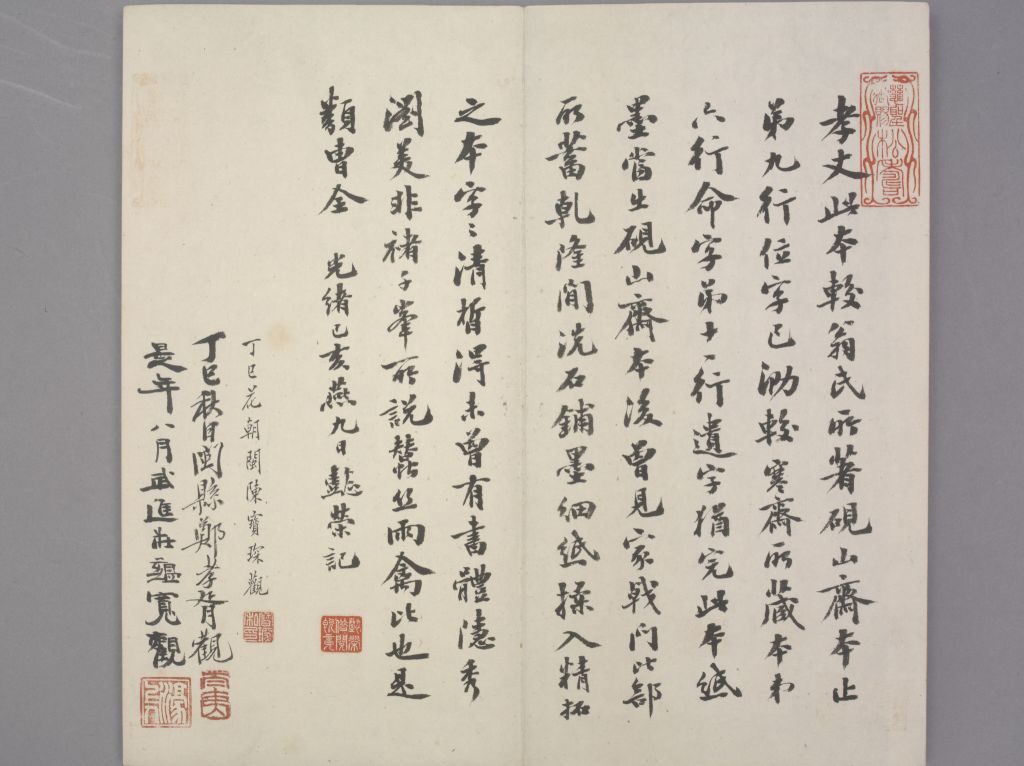 孝丈此本較翁氏所著硯山齋本止
第九行位字已泐較寒齋所藏本弟
六行命字弟十一行遺字猶完此本紙
墨當出硯山齋本後曾見家戟門比部
所蓄乾隆閒洗石鋪墨細紙揉入精拓
之本字〻清晳得未曾有書體濾秀
淵美非褚千峯所說鬆絲兩禽比也是
類曹全 光緒己亥燕九日懿榮記
丁巳花朝閩陳寶琛觀
丁巳秋日閩縣鄭孝胥觀
是年八月武進莊蘊寬觀